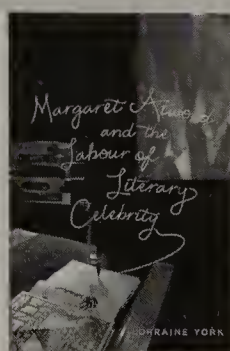 Margaret Atwood
and the
Labour of
Literary
Celebrity
LORRAINE YORK